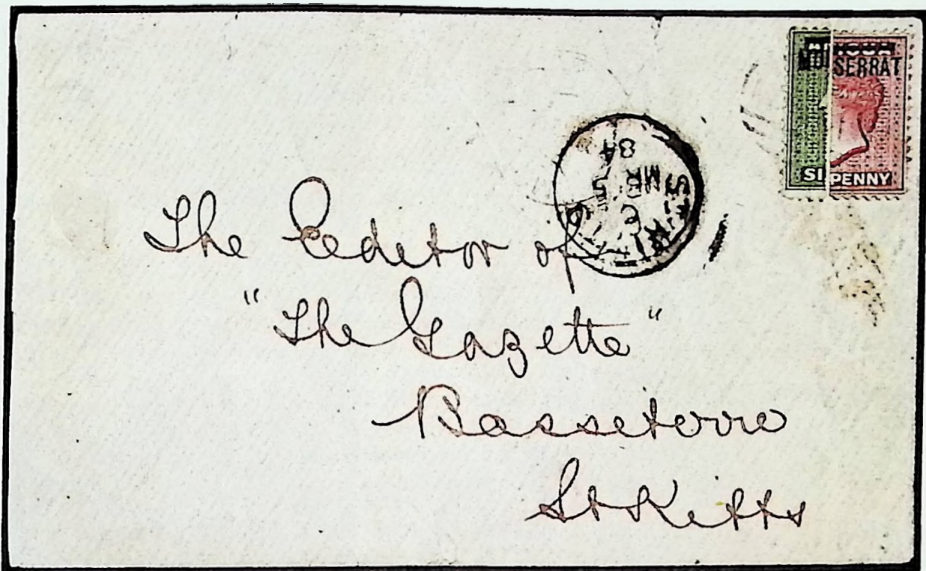 MON SERRAT
SI PENNY
ST. KITTS
C
MR 5
84
The Editor of
"The Gazette"
Basseterre
St Kitts